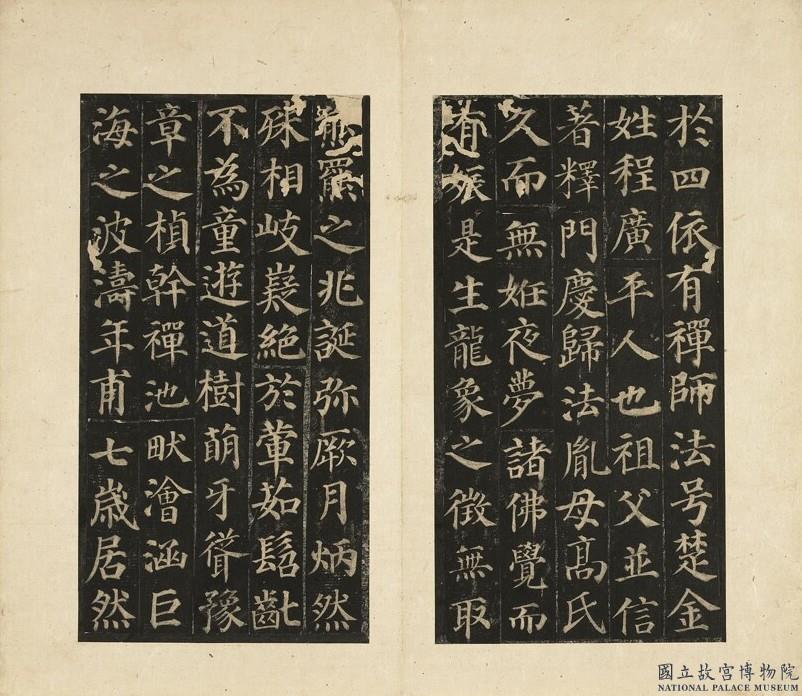 於四依有禪師法号楚金
姓程廣平人也祖父並信
著釋門慶歸法胤母髙氏
久而無姙夜夢諸佛覺而
有娠是生龍象之徴無取
羆之兆誕弥厥月炳然
殊相岐嶷絶於葷茹髫齔
不為童遊道樹萌牙聳豫
章之楨幹禪池畎澮涵巨
海之波濤年甫七歳居然
國立故宮博物院
NATIONAL PALACE MUSEUM